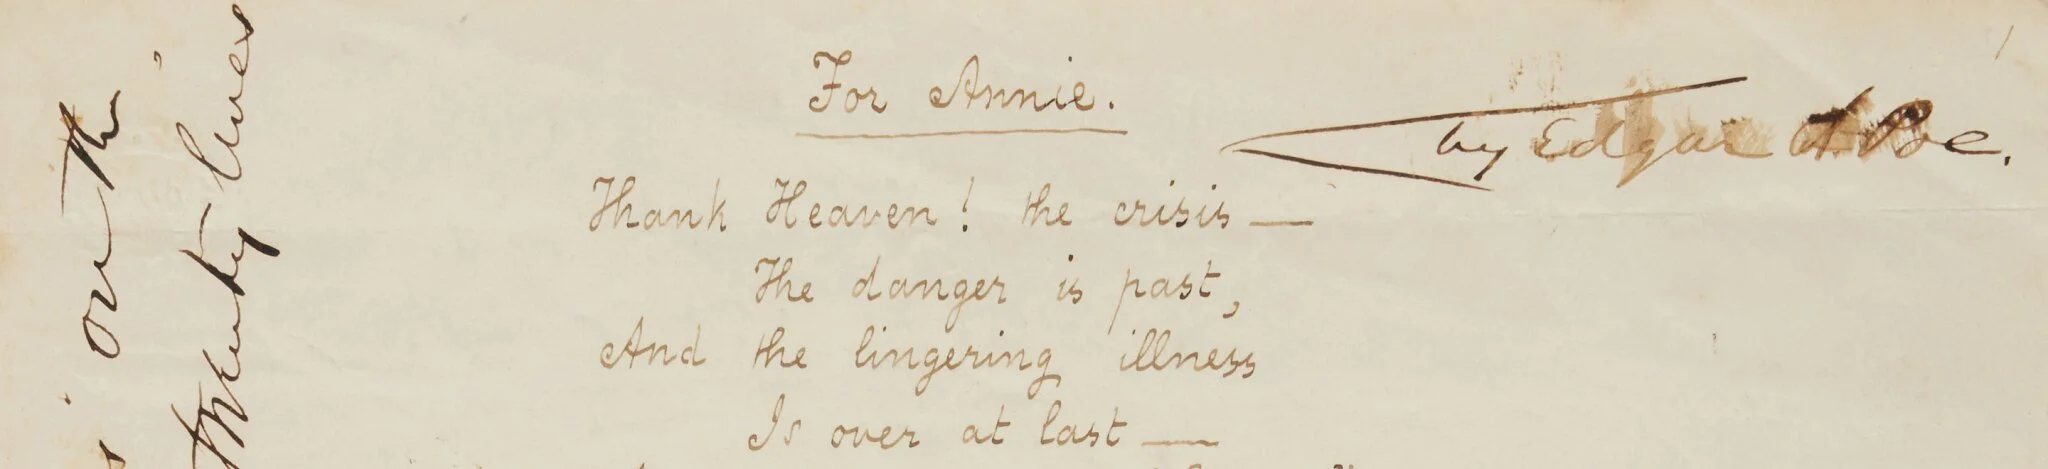 For Annie.
by Edgar A. Poe.
Thank Heaven! the crisis —
The danger is past,
And the lingering illness
Is over at last —
on the
lines